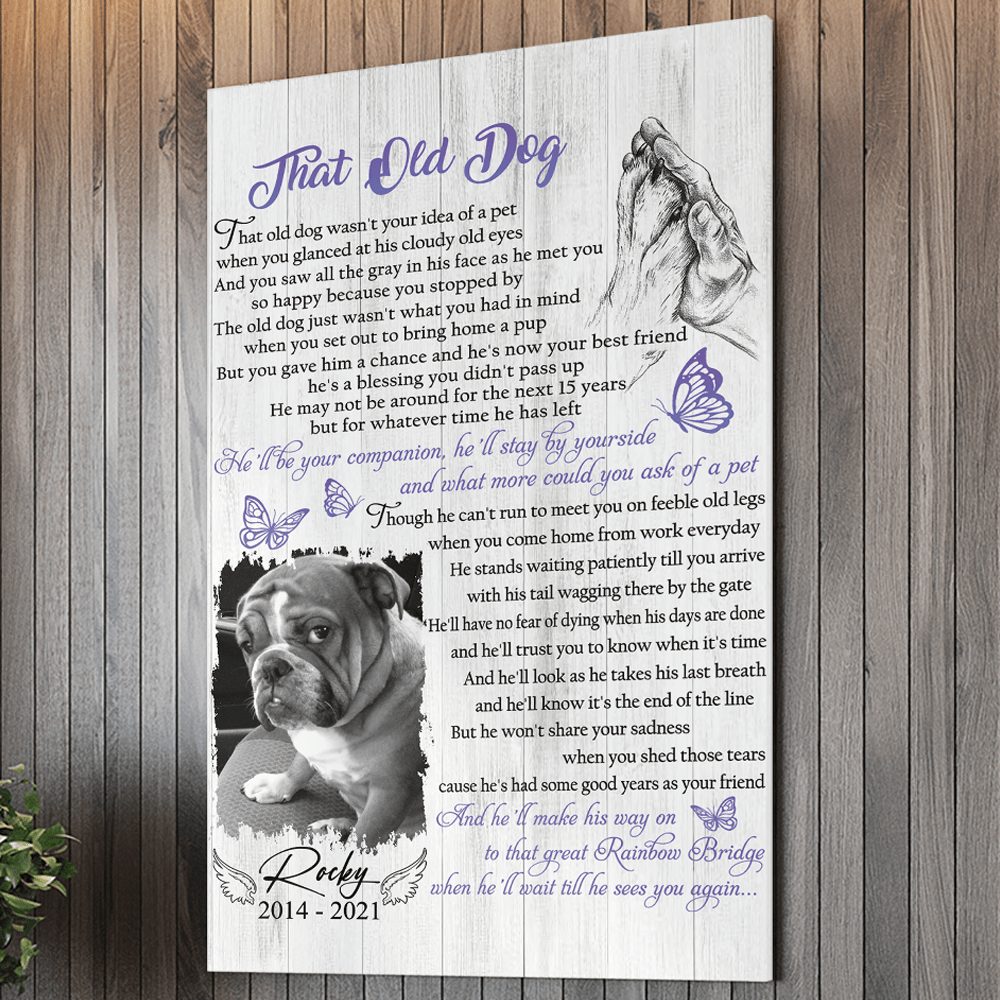 That Old Dog
That old dog wasn't your idea of a pet
when you glanced at his cloudy old eyes
And you saw all the gray in his face as he met you
so happy because you stopped by
The old dog just wasn't what you had in mind
when you set out to bring home a pup
But you gave him a chance and he's now your best friend
he's a blessing you didn't pass up
He may not be around for the next 15 years
but for whatever time he has left
He'll be your companion, he'll stay by yourside
and what more could you ask of a pet
Though he can't run to meet you on feeble old legs
when you come home from work everyday
He stands waiting patiently till you arrive
with his tail wagging there by the gate
He'll have no fear of dying when his days are done
and he'll trust you to know when it's time
And he'll look as he takes his last breath
and he'll know it's the end of the line
But he won't share your sadness
when you shed those tears
cause he's had some good years as your friend
And he'll make his way on
to that great Rainbow Bridge
when he'll wait till he sees you again...
Rocky
2014 - 2021